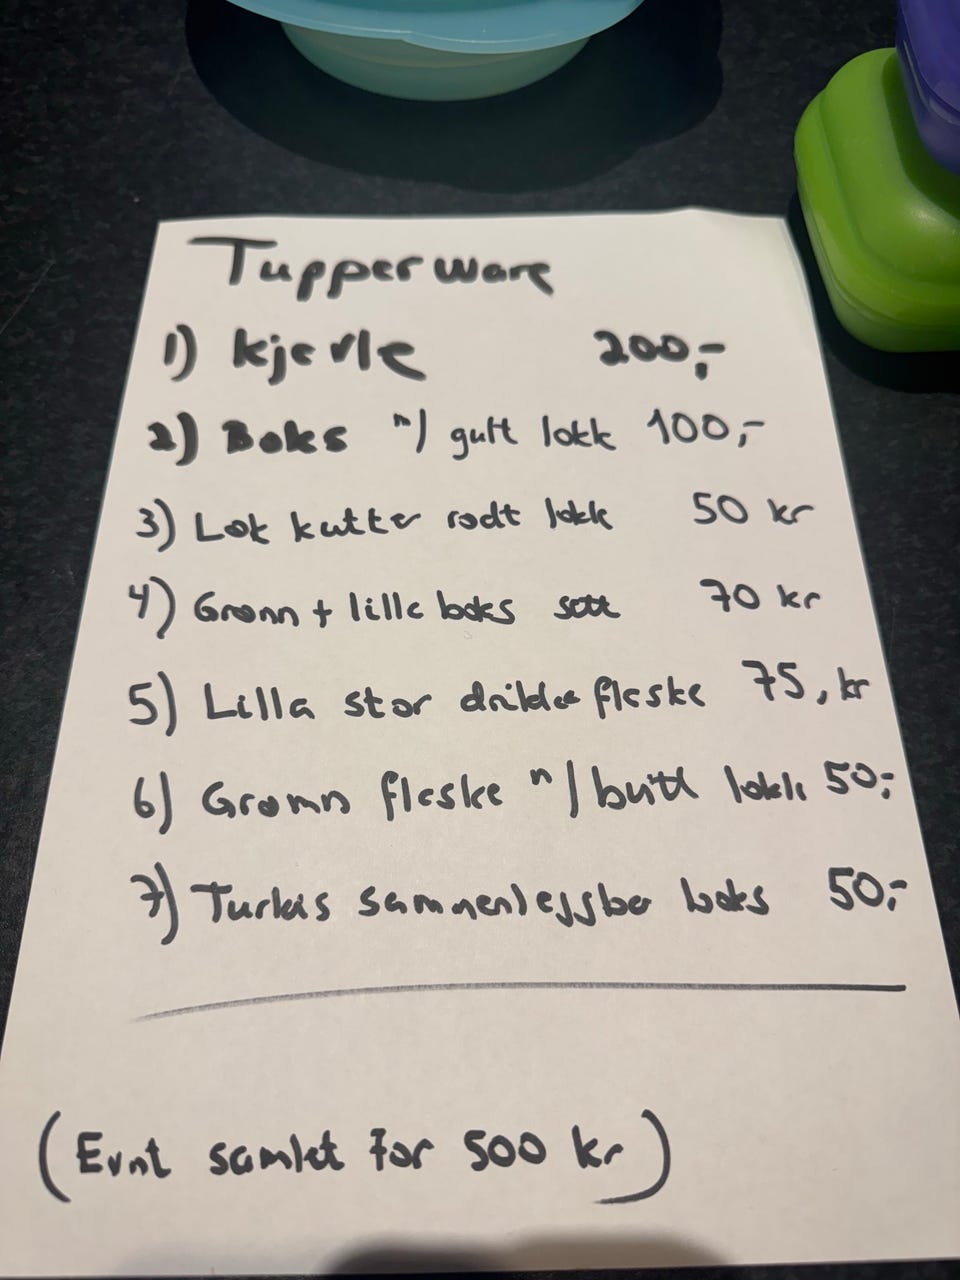 Tupperware
1) kjevle 200,-
2) Boks m/ gult lokk 100,-
3) Løk kutter rødt lokk 50 kr
4) Grønn + lille boks sett 70 kr
5) Lilla stor drikke flaske 75, kr
6) Grønn flaske m/ butt lokk 50,-
7) Turkis sammenleggbar boks 50,-
(Evnt samlet for 500 kr)